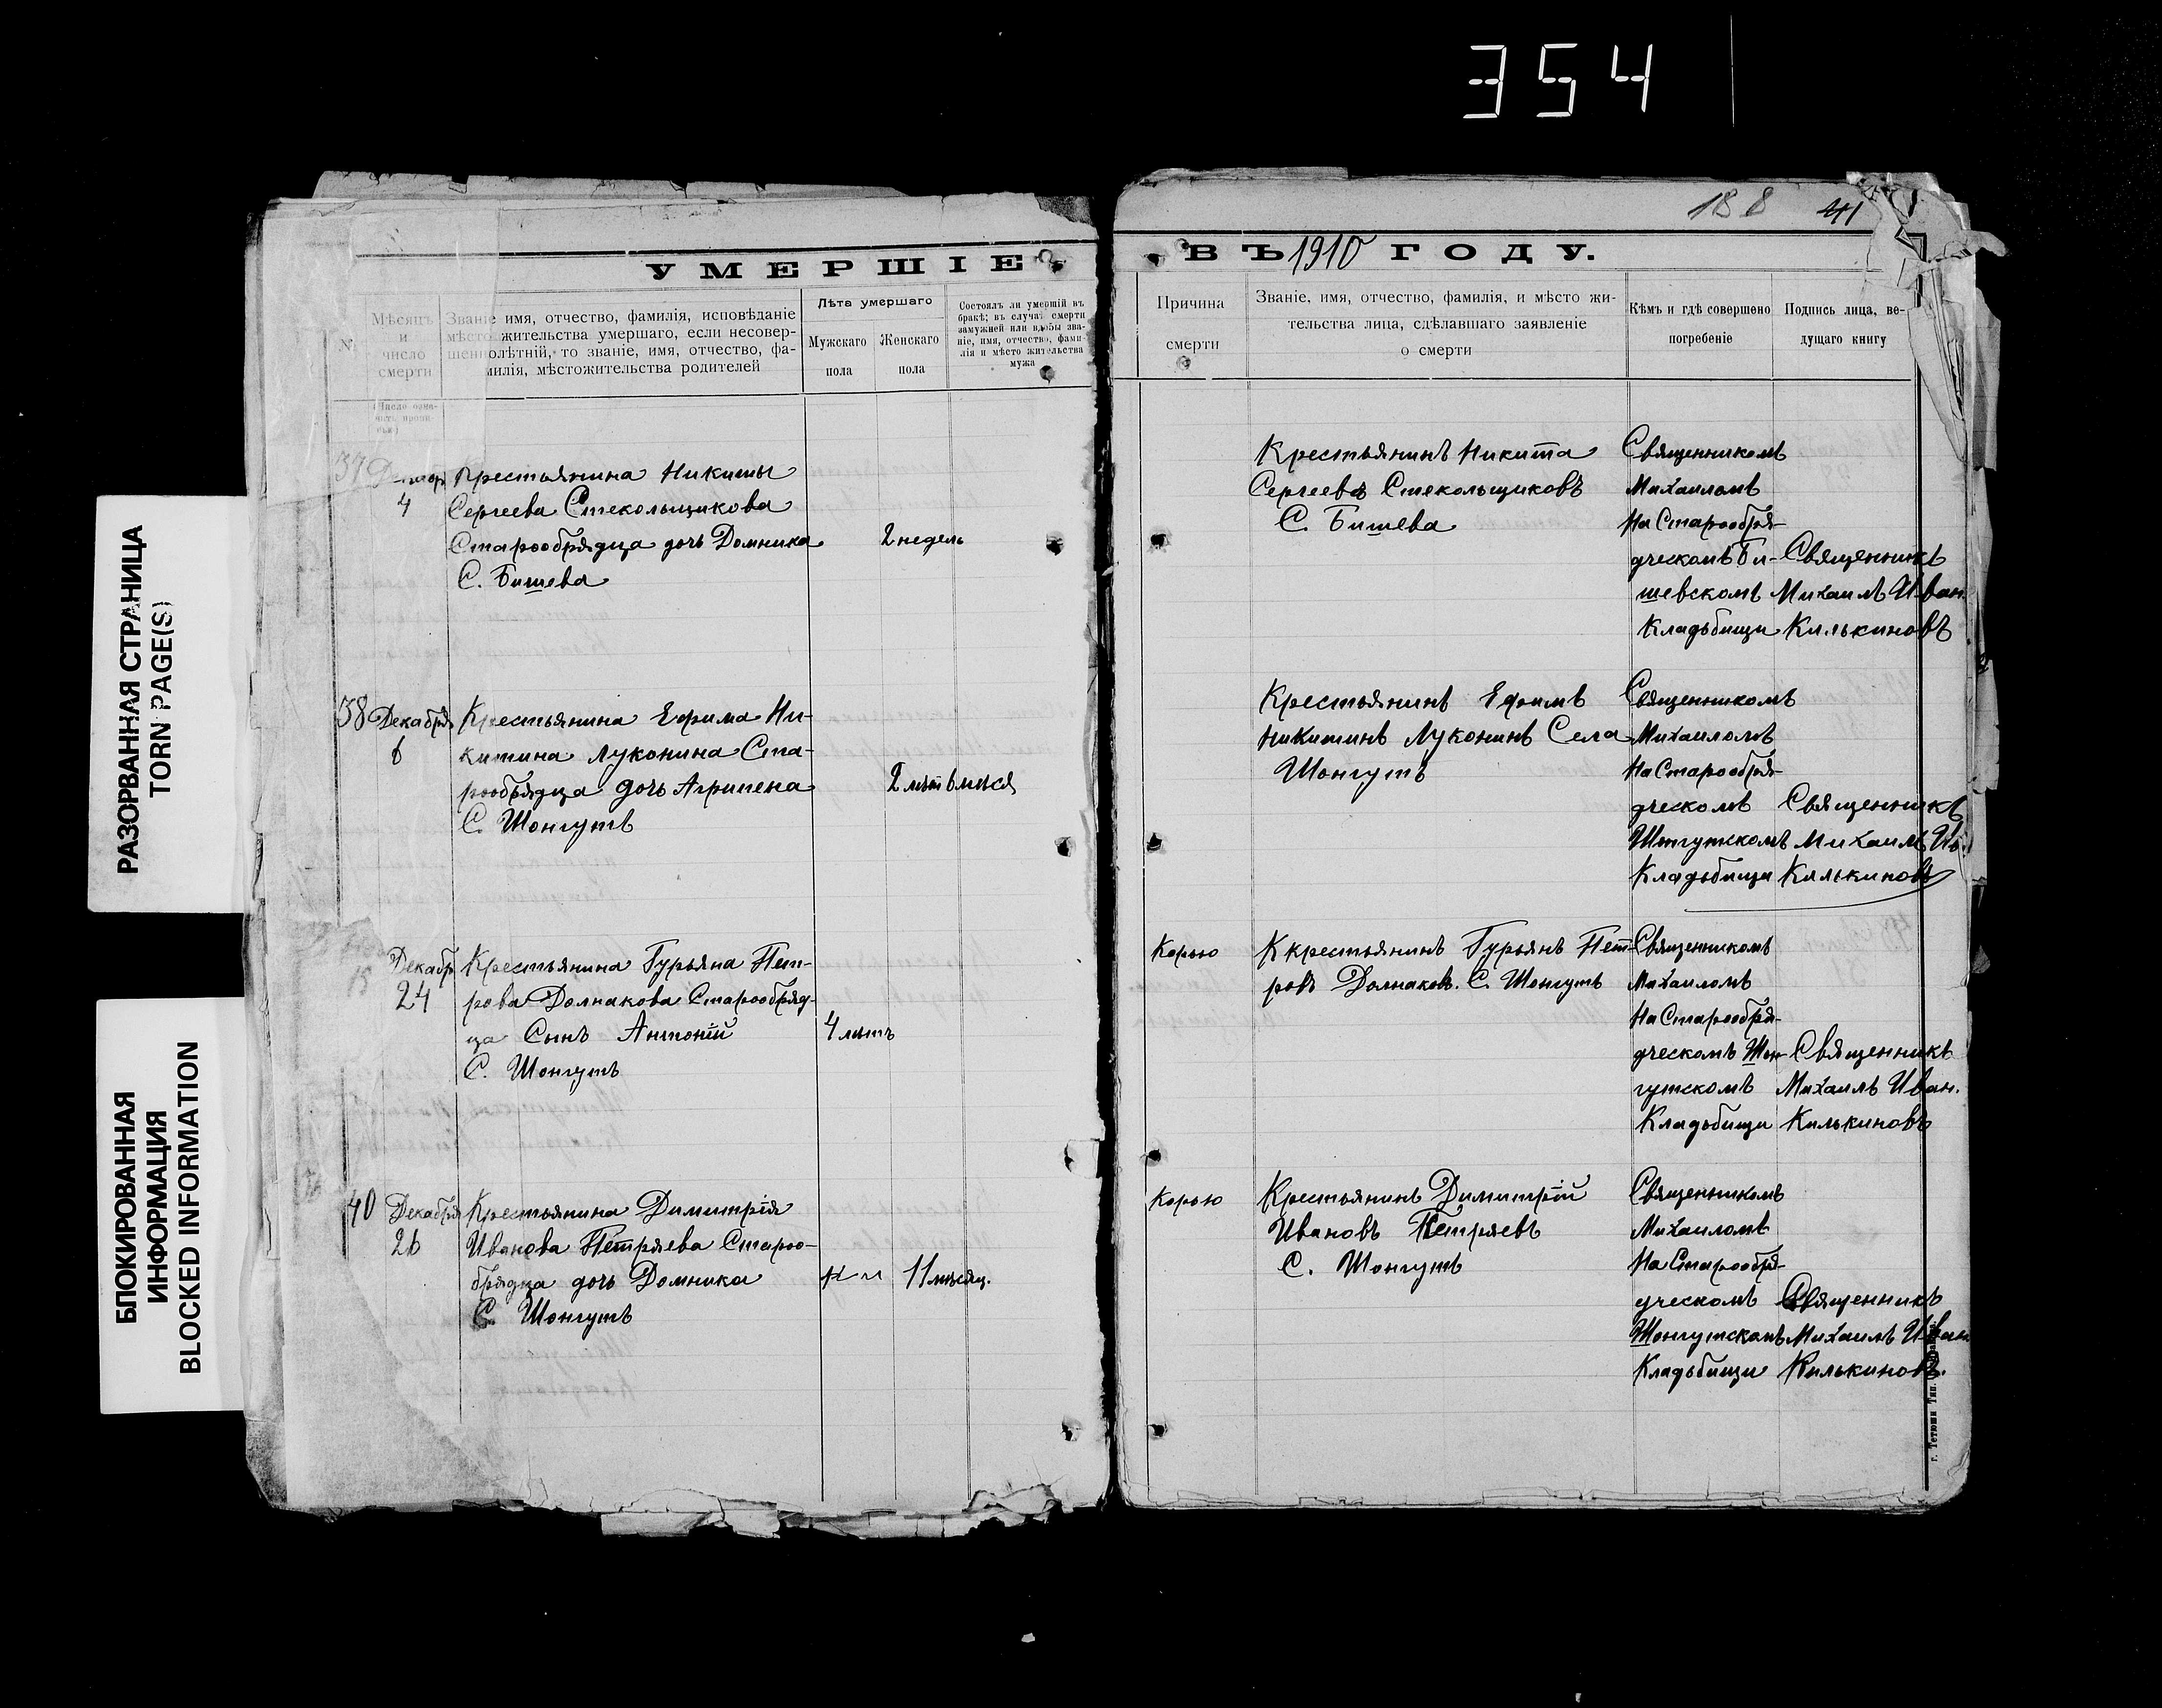 354
188 41
УМЕРШІЕ
ВЪ 1910 ГОДУ.
№
Мѣсяцъ
и
число
смерти
(Число озна-
чать пропи-
сью)
Званіе имя, отчество, фамилія, исповѣданіе
мѣсто жительства умершаго, если несовер-
шеннолѣтній, то званіе, имя, отчество, фа-
милія, мѣстожительства родителей
Лѣта умершаго
Мужскаго
пола
Женскаго
пола
Состоялъ ли умершій въ
бракѣ; въ случаѣ смерти
замужней или вдовы зва-
ніе, имя, отчество, фами-
лія и мѣсто жительства
мужа
Причина
смерти
Званіе, имя, отчество, фамилія, и мѣсто жи-
тельства лица, сдѣлавшаго заявленіе
о смерти
Кѣмъ и гдѣ совершено
погребеніе
Подпись лица, ве-
дущаго книгу
37
4
Крестьянина Никиты
Сергеева Стекольщикова
Старообрядца дочь Домника
С. Бишева
2 недель
Крестьянинъ Никита
Сергеевъ Стекольщиковъ
С. Бишева
Священникомъ
Михаиломъ
На Старообря-
дческомъ Би-
шевскомъ
Кладьбищи
Священникъ
Михаилъ Иван.
Килькиновъ
38 Декабря
6
Крестьянина Ефима Ни-
китина Луконина Ста-
рообрядца дочь Агрипена
С. Шонгутъ
2 лѣт 6 мися
Крестьянинъ Ефимъ
Никитинъ Луконинъ Села
Шонгутъ
Священникомъ
Михаиломъ
На Старообря-
дческомъ
Шонгутскомъ
Кладьбищи
Священникъ
Михаилъ Ив.
Килькиновъ
Декабр
24
Крестьянина Гурьяна Пет-
рова Долнакова Старообряд-
ца Сынъ Антоній
С. Шонгутъ
4 лѣтъ
Корью
Ккрестьянинъ Гурьянъ Пет-
ровъ Долнаковъ. С. Шонгутъ
Священникомъ
Михаиломъ
На Старообря-
дческомъ Шон-
гутскомъ
Кладьбищи
Священникъ
Михаилъ Иван.
Килькиновъ
40 Декабря
26
Крестьянина Димитрія
Иванова Петряева Старо-
брядца дочь Домника
С. Шонгутъ
11 мѣсяц.
Корью
Крестьянинъ Димитрій
Ивановъ Петряевъ
С. Шонгутъ
Священникомъ
Михаиломъ
На Старообря-
дческомъ
Шонгутскомъ
Кладьбищи
Священникъ
Михаилъ Иван
Килькиновъ.
г. Тетюши Тип.
РАЗОРВАННАЯ СТРАНИЦА
TORN PAGE(S)
БЛОКИРОВАННАЯ
ИНФОРМАЦИЯ
BLOCKED INFORMATION